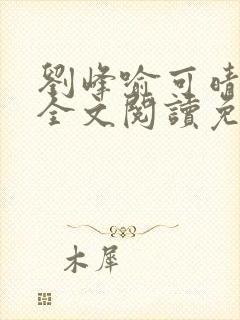 劉峰喻可晴
全文閱讀免
木犀